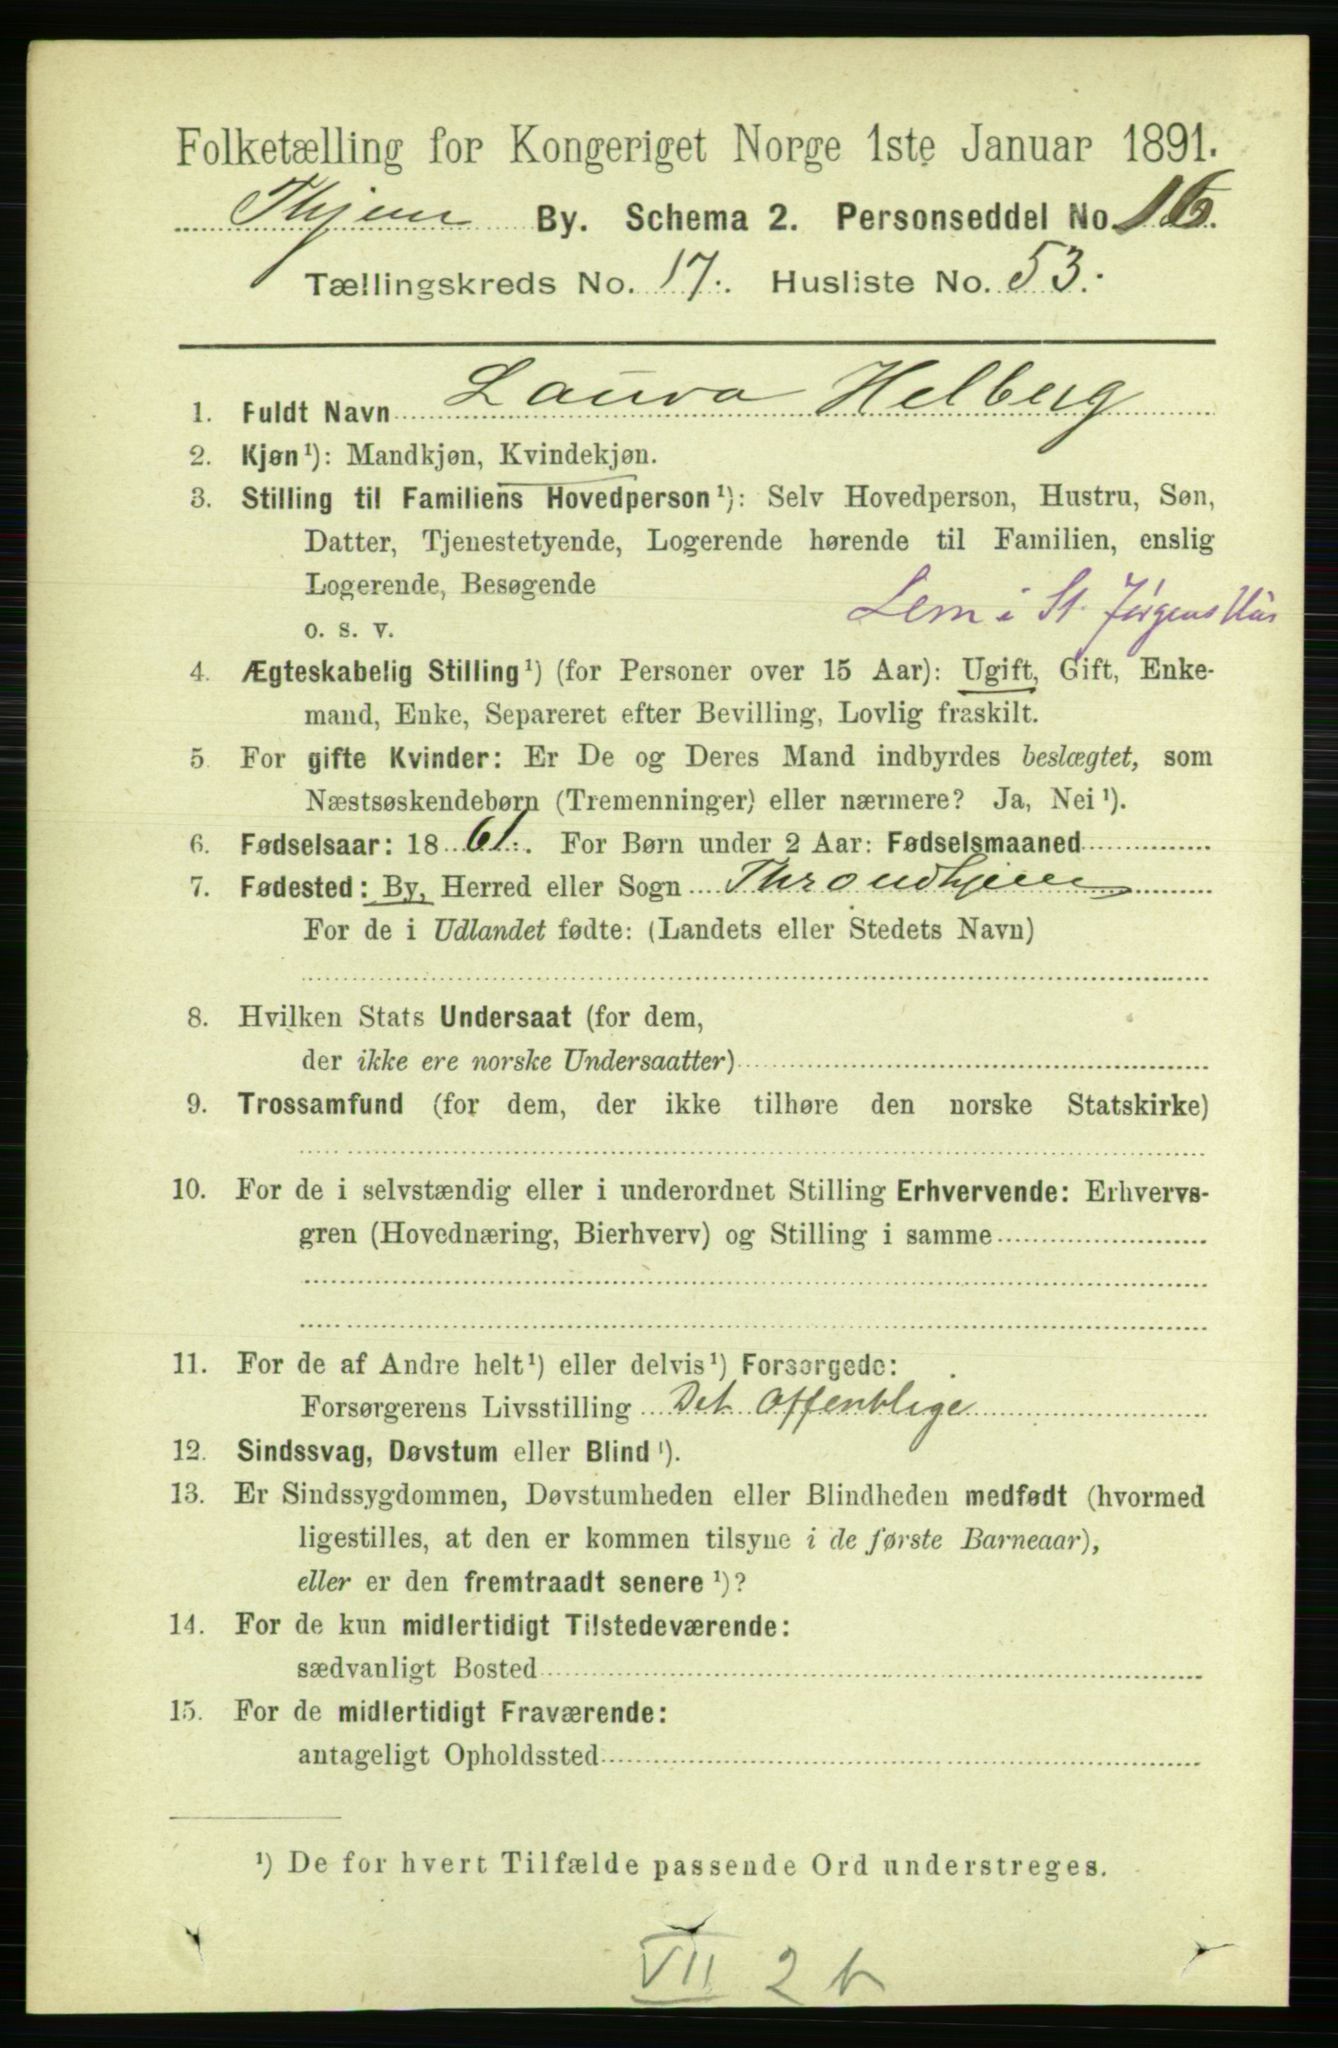 Folketælling for Kongeriget Norge 1ste Januar 1891.
Thjem By. Schema 2. Personseddel No. 16.
Tællingskreds No. 17. Husliste No. 53.
Laura Helberg
1. Fuldt Navn
2. Kjøn¹): Mandkjøn, Kvindekjøn.
3. Stilling til Familiens Hovedperson¹): Selv Hovedperson, Hustru, Søn,
Datter, Tjenestetyende, Logerende hørende til Familien, enslig
Logerende, Besøgende
Lem i St. Jørgens Hus
o. s. v.
4. Ægteskabelig Stilling¹) (for Personer over 15 Aar): Ugift, Gift, Enke-
mand, Enke, Separeret efter Bevilling, Lovlig fraskilt.
5. For gifte Kvinder: Er De og Deres Mand indbyrdes beslægtet, som
Næstsøskendebørn (Tremenninger) eller nærmere? Ja, Nei¹).
6. Fødselsaar: 1861. For Børn under 2 Aar: Fødselsmaaned
7. Fødested: By, Herred eller Sogn Throndhjem
For de i Udlandet fødte: (Landets eller Stedets Navn)
8. Hvilken Stats Undersaat (for dem,
der ikke ere norske Undersaatter)
9. Trossamfund (for dem, der ikke tilhøre den norske Statskirke)
10. For de i selvstændig eller i underordnet Stilling Erhvervende: Erhvervs-
gren (Hovednæring, Bierhverv) og Stilling i samme
11. For de af Andre helt¹) eller delvis¹) Forsørgede:
Forsørgerens Livsstilling Det offentlige
12. Sindssvag, Døvstum eller Blind¹).
13. Er Sindssygdommen, Døvstumheden eller Blindheden medfødt (hvormed
ligestilles, at den er kommen tilsyne i de første Barneaar),
eller er den fremtraadt senere¹)?
14. For de kun midlertidigt Tilstedeværende:
sædvanligt Bosted
15. For de midlertidigt Fraværende:
antageligt Opholdssted
¹) De for hvert Tilfælde passende Ord understreges.
VII 2 b